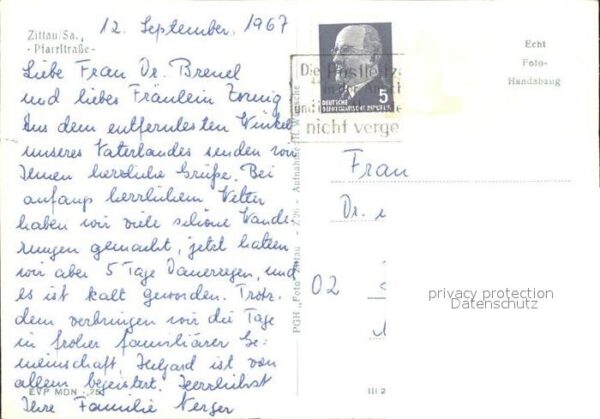 12. September, 1967
Zittau/Sa.,
- Pfarrstraße -
Liebe Frau Dr. Breuel
und liebes Fräulein Zornig
Aus dem entferntesten Winkel
unseres Vaterlandes senden wir
Ihnen herzliche Grüße. Bei
anfangs herrlichem Wetter
haben wir viele schöne Wande-
rungen gemacht, jetzt hatten
wir aber 5 Tage Dauerregen, und
es ist kalt geworden. Trotz-
dem verbringen wir die Tage
in froher familiärer Ge-
meinschaft, Helgard ist von
allem begeistert. Herzlichst
Ihre Familie Nerger
EVP MDN -,25
PGH „Foto" Zittau - Z 26 - Aufnahme
DEUTSCHE
DEMOKRATISCHE REPUBLIK
5
Die Postleitza
in der
und
nicht verge
Echt
Foto-
Handabzug
Frau
Dr.
02
privacy protection
Datenschutz
III 2